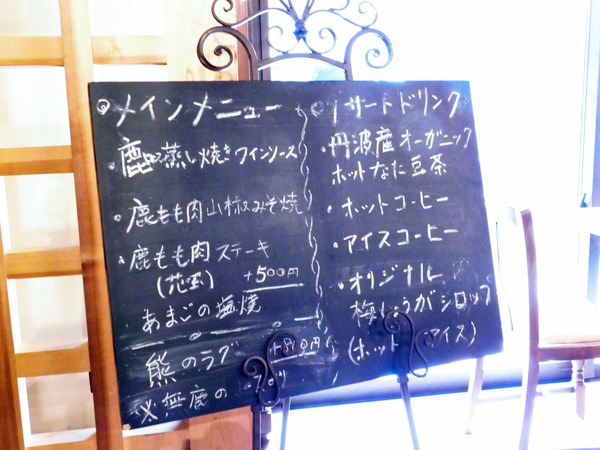 メインメニュー
・鹿の蒸し焼きワインソース
・鹿もも肉山椒みそ焼
・鹿もも肉ステーキ
+500円
あまごの塩焼
熊のラグ
+800円
デザートドリンク
・丹波産オーガニック
ホットなた豆茶
・ホットコーヒー
・アイスコーヒー
・オリジナル
梅しょうがシロップ
(ホット アイス)